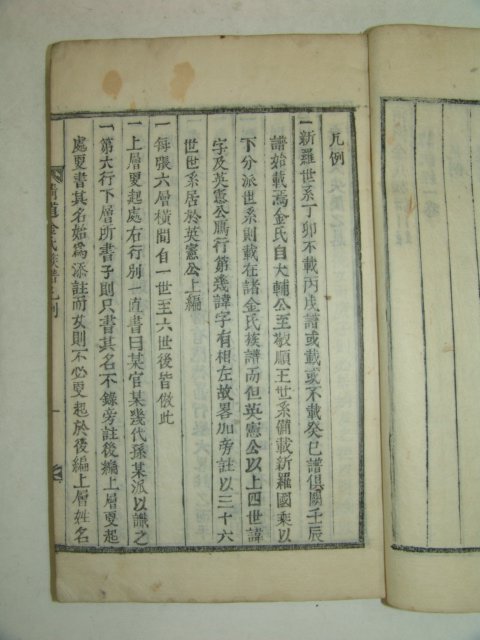 凡例
一新羅世系丁卯不載丙戌譜或載或不載癸巳譜俱闕壬辰
譜始載焉金氏自大輔公至敬順王世系備載新羅國乘以
下分派世系則載在諸金氏族譜而但英憲公以上四世諱
字及英憲公鴈行第幾諱字有相左故畧加旁註以三十六
世世系居於英憲公上編
一每張六層橫間自一世至六世後皆倣此
一上層更起處右行別一直書曰某官某幾代孫某派以識之
一第六行下層所書子則只書其名不錄旁註後編上層更起
處更書其名始爲添註而女則不必更起於後編上層姓名
清道金氏族譜凡例
一